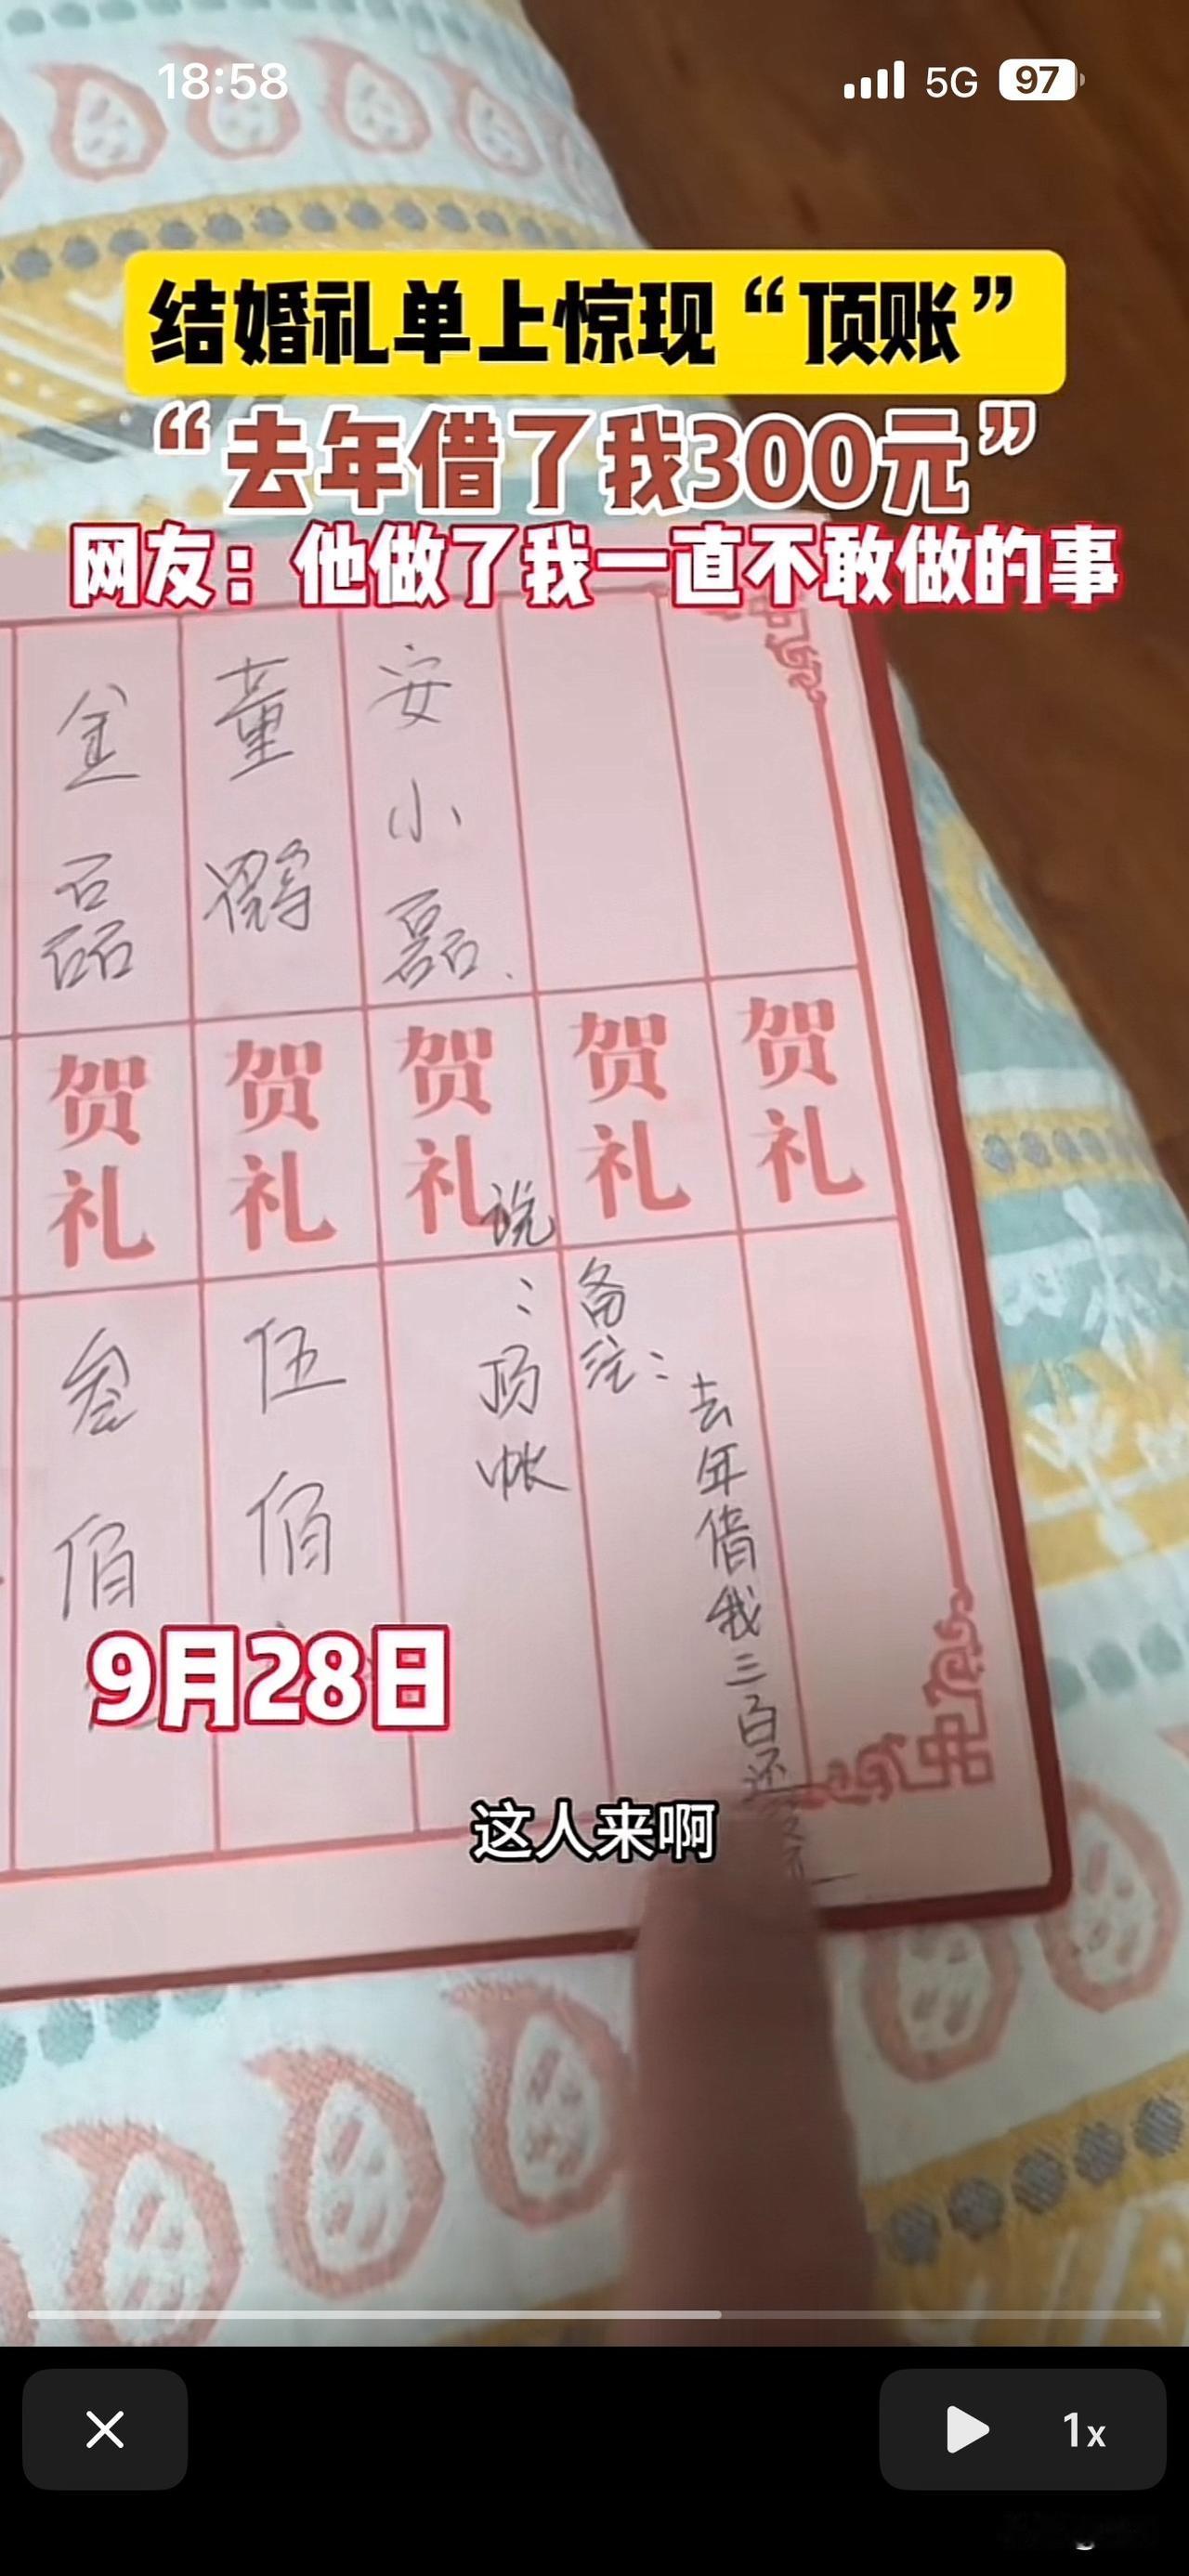 18:58
5G
97
结婚礼单上惊现“顶账”
“去年借了我300元”
网友：他做了我一直不敢做的事
金磊
董
安小磊.
贺礼
贺礼
贺礼
贺礼
贺礼
叁佰
伍佰
说：顶帐
备注：
去年借我三百还
9月28日
这人来啊
1x